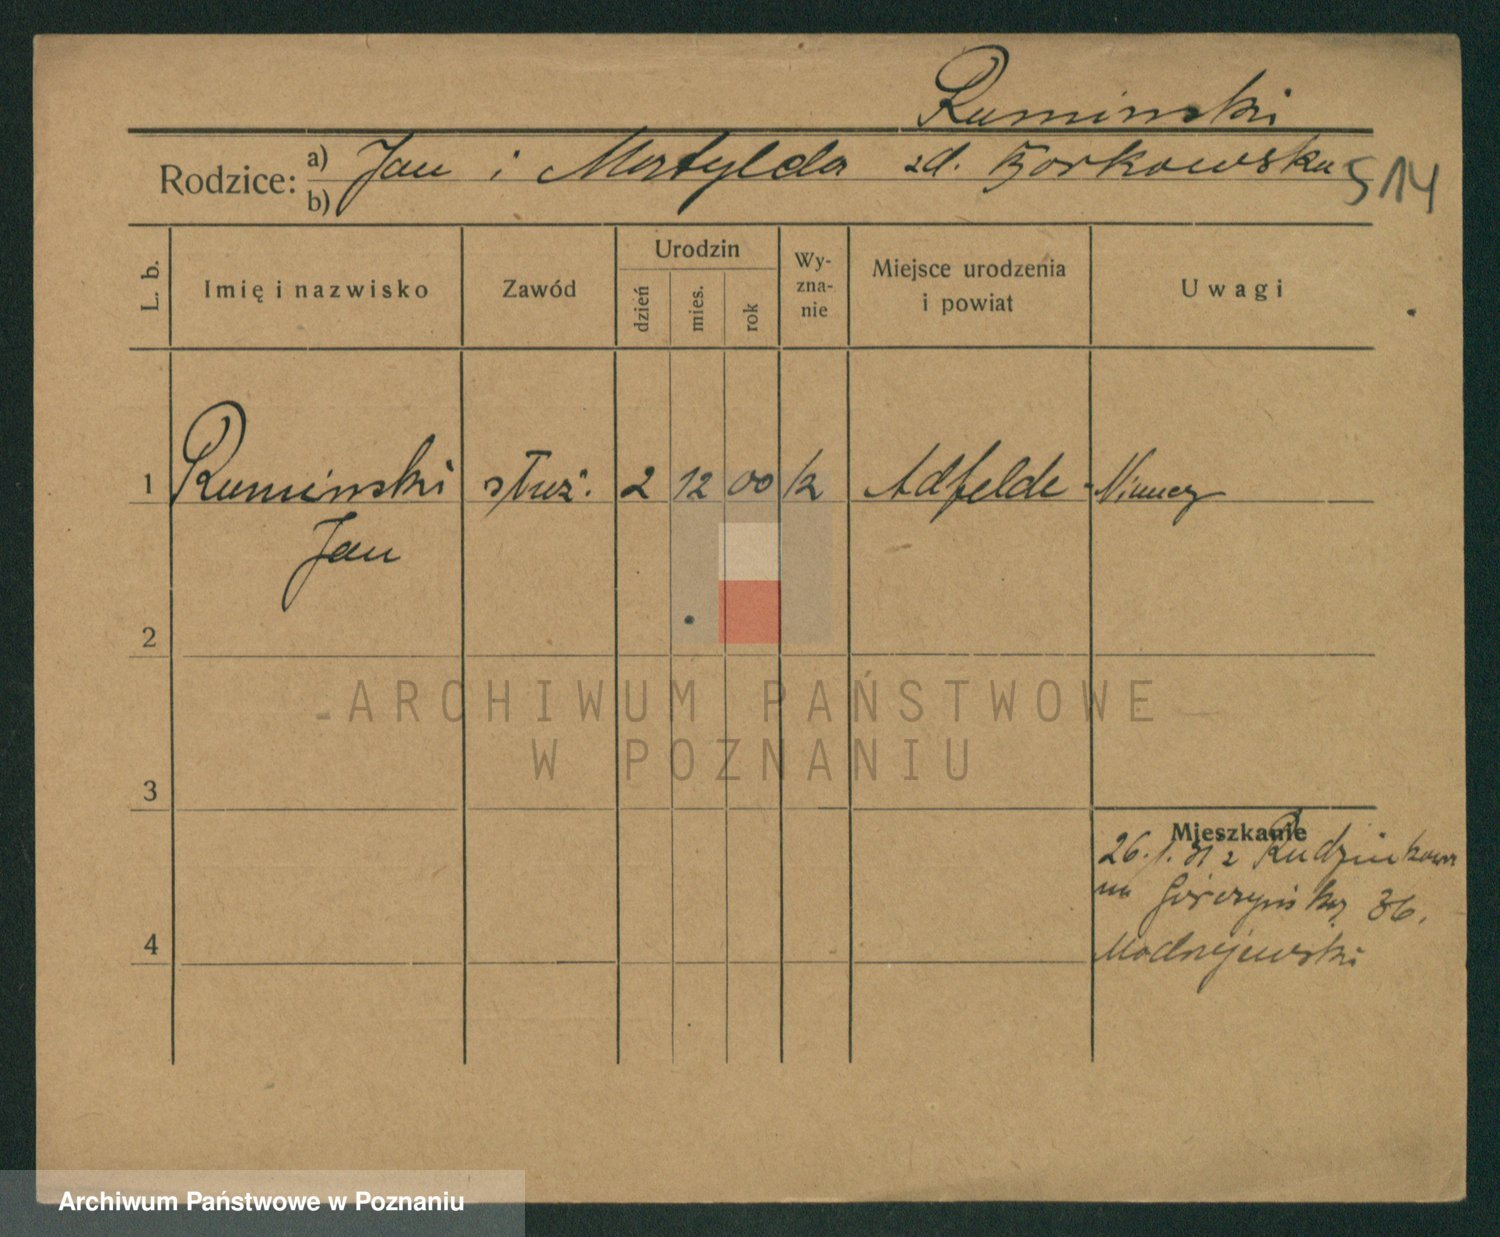 Ruminski
Rodzice: a) Jan i Matylda zd. Borkowska 514
b)
L. b.
Imię i nazwisko
Zawód
Urodzin
dzień
mies.
rok
Wy-
zna-
nie
Miejsce urodzenia
i powiat
Uwagi
1 Ruminski służ. 2 12 00 k Adfelde - Niemcy
Jan
2
ARCHIWUM PAŃSTWOWE
W POZNANIU
3
Mieszkanie
26. 1. 31 z
na 36.
4
Archiwum Państwowe w Poznaniu